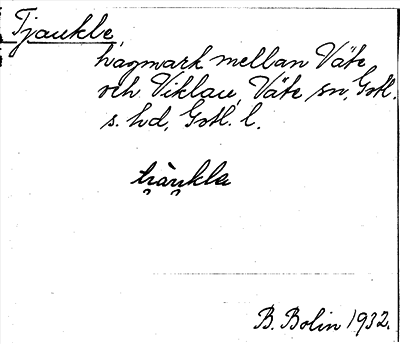 Tjaukle,
hagmark mellan Väte
och Viklau, Väte sn, Gotl.
s. hd, Gotl. l.
B. Bolin 1932.